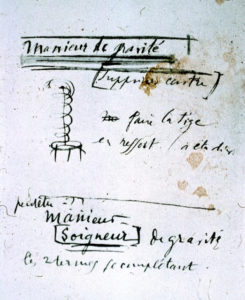 Manieur de gravité
[Supprimer
a
Faire la tige
en ressort (
peut être
Manieur
[Soigneur] de gravité
les 2 termes se complétant.